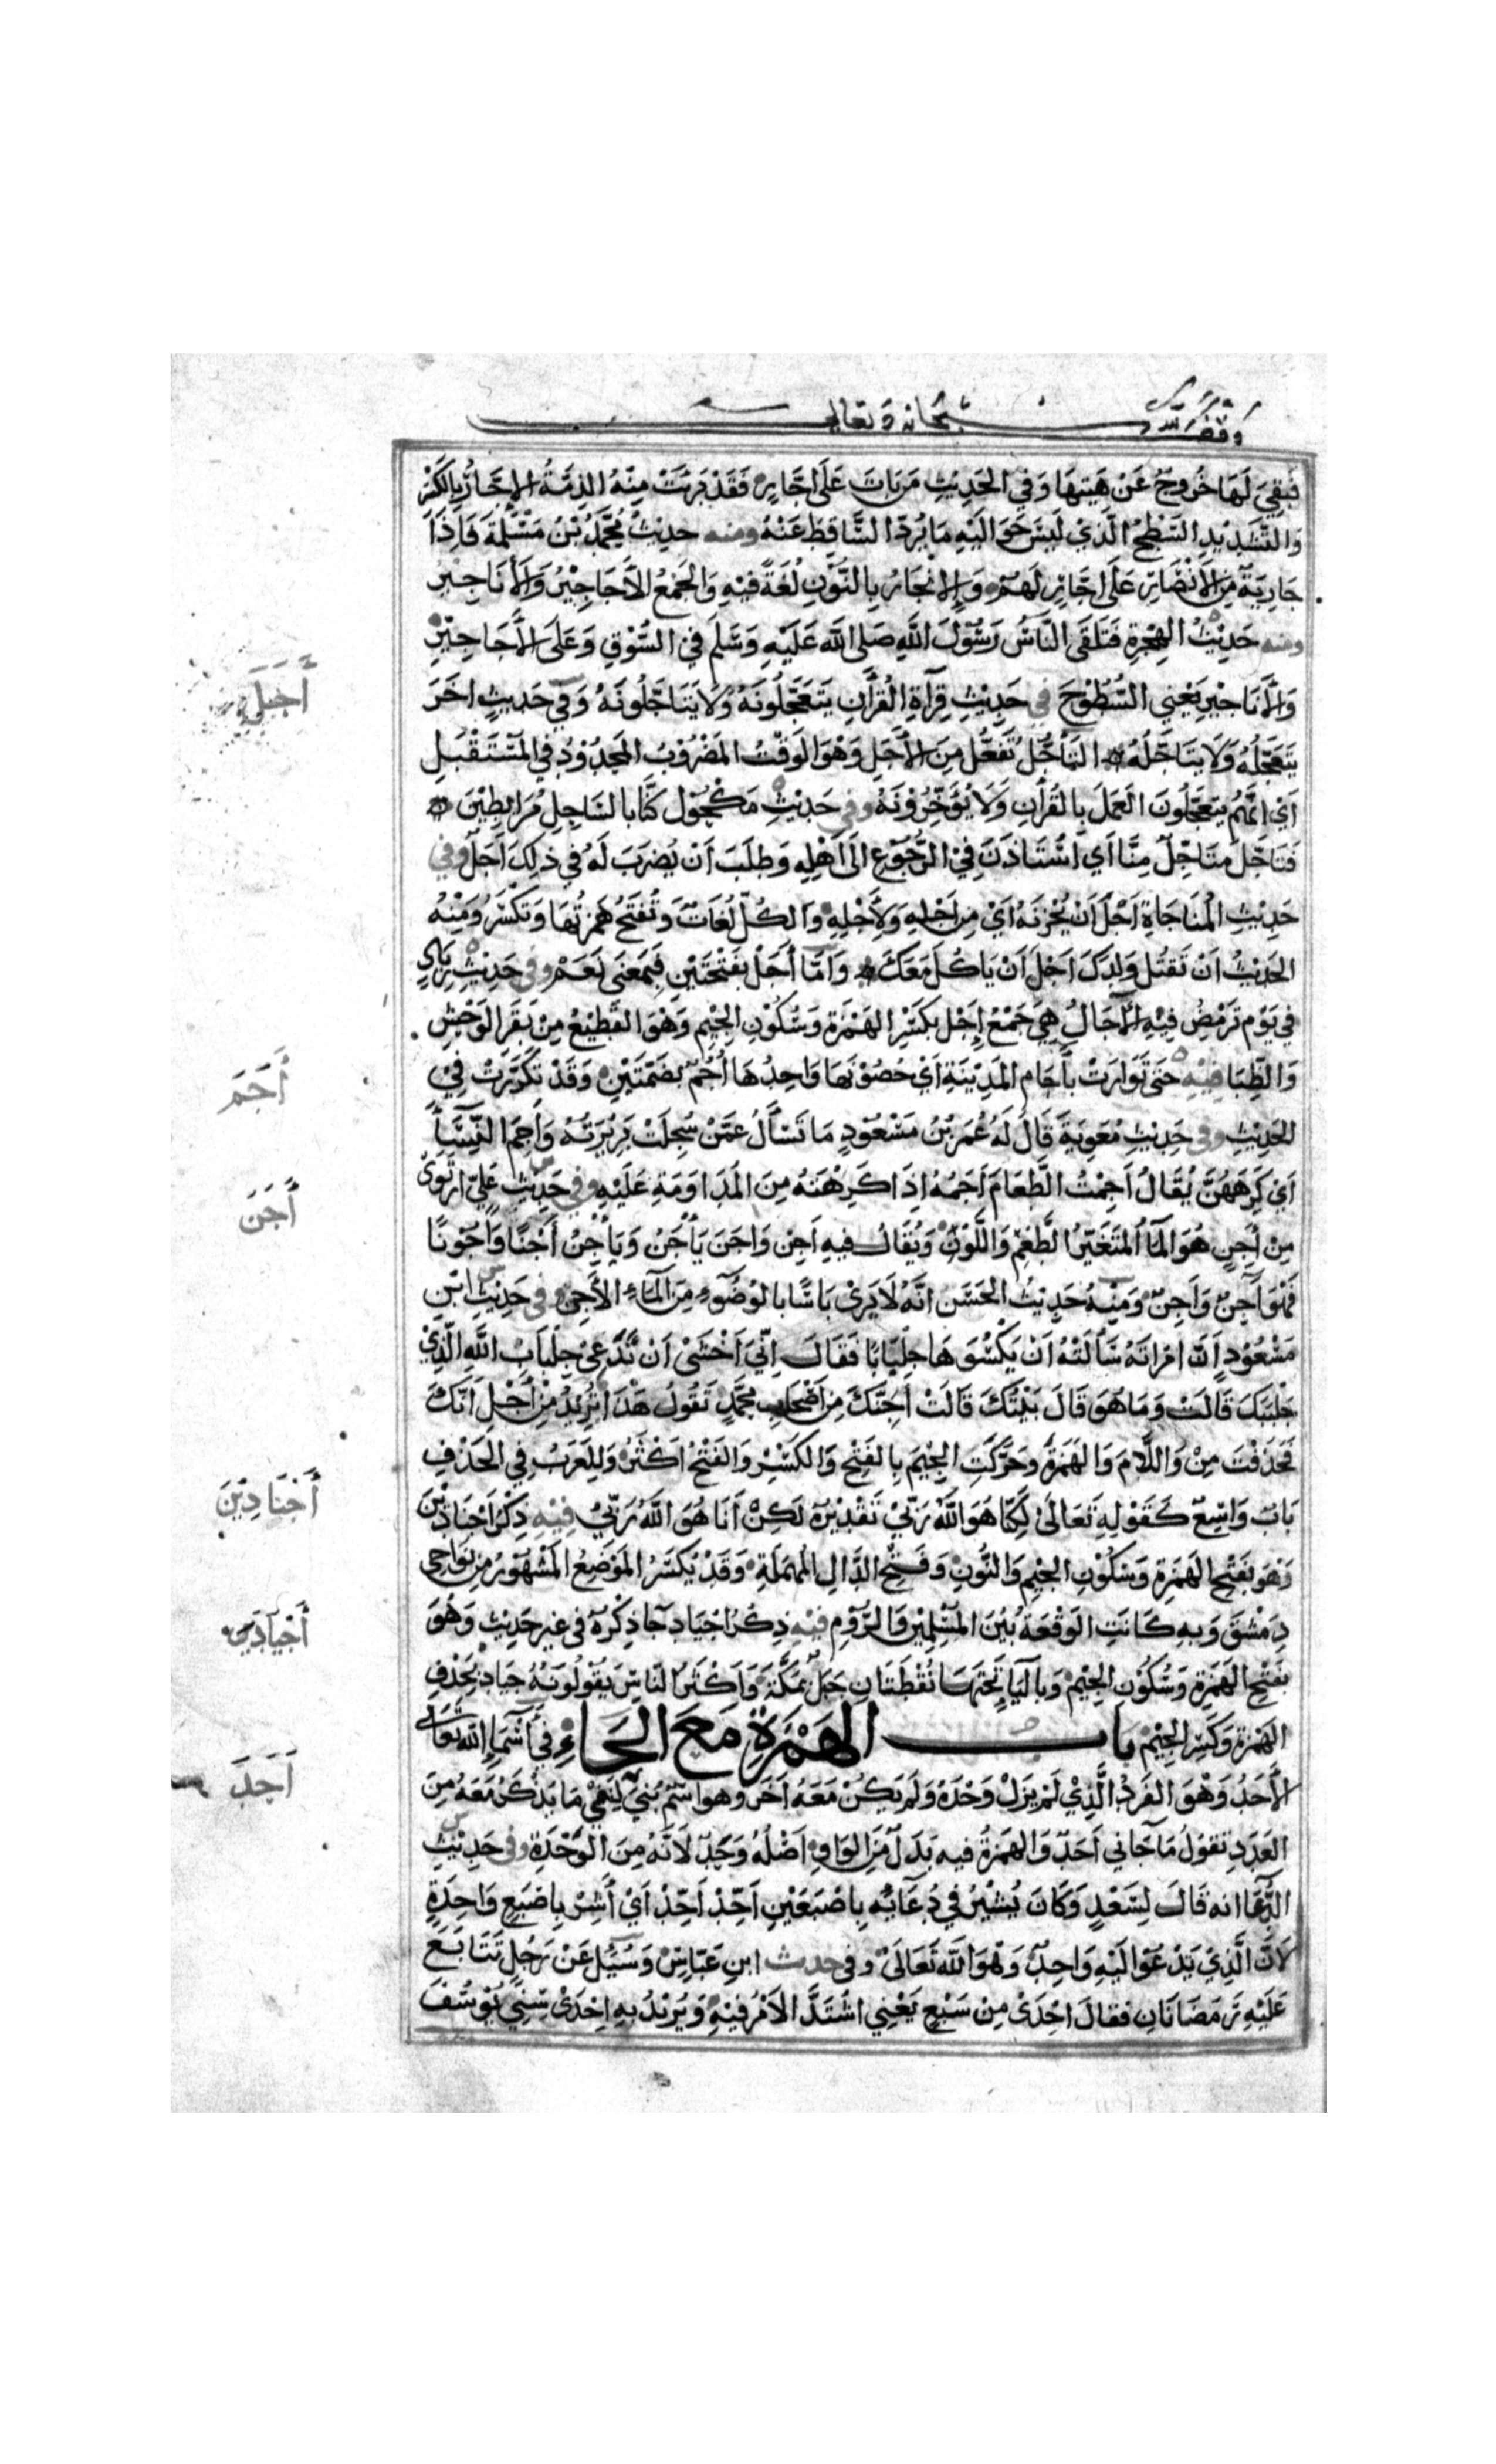 وقف لله سبحانه وتعالى
فَبَقِيَ لَهَا خُرُوجٌ عَنْ هَيْئَتِهَا وَفِي الحَدِيْثِ مَنْ بَاتَ عَلَى اجَّارٍ فَقَدْ بَرِئَتْ مِنْهُ الذِمَّةُ الاِجَّارُ بِالكَسْرِ
وَالتَّشْدِيْدِ السَّطْحُ الَّذِيْ لَيْسَ حَوَالَيْهِ مَا يَرُدُّ السَّاقِطَ عَنْهُ ومنه حديثُ مُحَمَّدُ بْنُ مَسْلَمَةَ فَاِذَا
جَارِيَةٌ مِنَ الاَنْصَارِ عَلَى اجَّارٍ لَهُمْ وَالاِنْجَارُ بِالنُّوْنِ لُغَةٌ فِيْهِ وَالجَمْعُ الاَجَاجِيْرُ وَالاَنَاجِيْرُ
ومنه حَدِيْثُ الهِجْرَةِ فَتَلَقَى النَّاسُ رَسُوْلَ اللهِ صَلى اللهُ عَلَيْهِ وَسَلَّمَ فِي السُّوْقِ وَعَلَى الاَجَاجِيْرِ
وَالاَنَاجِيْرِ يَعْنِي السُّطُوْحَ في حَدِيْثِ قِرَآةِ القُرْآنِ يَتَعَجَّلُونَهُ وَلاَ يَتَاجَّلُونَهُ وَفِي حَديثٍ اخَرَ
يَتَعَجَّلُهُ وَلاَ يَتَاجَّلُهُ التَأَجُّلُ تَفَعُّلٌ مِنَ الاَجَلِ وَهْوَ الوَقْتُ المَضْرُوْبُ المَحْدُوْدُ فِي المُسْتَقْبَلِ
اَيْ اِنَّهُمْ يَتَعَجَّلُونَ العَمَلَ بِالقُرْآنِ وَلاَ يُؤَخِّرُوْنَهُ وفي حَدِيْثِ مَكْحُوْلٍ كُنَّا بِالسَّاحِلِ مُرَابِطِيْنَ
فَتَاجَّلَ مُتَاجِّلٌ مِنَّا اَي اسْتَاذَنَ فِيْ الرُّجُوْعِ اِلَى اَهْلِهِ وَطَلَبَ اَنْ يُضْرَبَ لَهُ فِي ذلِكَ اَجَلٌ وفي
حَدِيْثِ المُنَاجَاةِ اَجْلَ اَنْ يُحْزِنَهُ اَيْ مِنْ اَجْلِهِ وَلِأَجْلِهِ وَالكُلُّ لُغَاتٌ وَتُفْتَحُ هَمْزَتُهَا وَتُكْسَرُ وَمِنْهُ
الحَدِيْثُ اَنْ تَقْتُلَ وَلَدَكَ اَجْلَ اَنْ يَاكُلَ مَعَكَ وَاَمَّا أَجَلْ بِفَتْحَتَيْنِ فَبِمَعْنَى نَعَمْ وفي حَدِيْثِ زِيَادٍ
فِي يَوْمٍ تَرْمَضُ فِيْهِ الآجَالُ هِيَ جَمْعُ اِجْلٍ بِكَسْرِ الهَمْزَةِ وَسُكُوْنِ الجِيْمِ وَهْوَ القَطِيْعُ مِنْ بَقَرِ الوَحْشِ
وَالظِّبَا فِيْهِ حَتَى تَوَارَتْ بِآجَامِ المَدِيْنَةِ اَيْ حُصُوْنِهَا وَاحِدُهَا اُجُمٌ بِضَمَّتَيْنِ وَقَدْ تَكَرَّرَتْ فِيْ
الحَدِيْثِ وفي حَدِيْثِ مُعَوِيَةَ قَالَ لَهُ عُمَرُ بْنُ مَسْعُوْدٍ مَا تَسْأَلُ عَمَّنْ سُحِلَتْ مَرِيْرَتُهُ وَاَجَمَ النِّسَآءَ
اَيْ كَرِهَهُنَّ يُقَالُ اَجِمْتُ الطَّعَامَ اَجَمُهُ اِذَا كَرِهْتَهُ مِنَ المُدَاوَمَةِ عَلَيْهِ وفي حَدِيْثِ عَلِيٍّ ارْتَوَىْ
مِنْ اَجِنٍ هُوَ المَآءُ المُتَغَيِّرُ الطَّعْمِ وَاللَّوْنِ وَيُقَالُ فِيهِ اَجِنَ وَاجَنَ يَأْجَنُ وَيَأْجِنُ أَجْنًا وَاُجُونًا
فَهْوَ آجِنٌ وَاَجِنٌ وَمِنْهُ حَدِيْثُ الحَسَنِ انَّهُ لاَ يَرَىْ بَاسًا بِالوُضُوْءِ مِنَ المَآءِ الاَجِنِ وفي حَدِيْثِ ابْنِ
مَسْعُوْدٍ اَنَّ امْرَاتَهُ سَأَلَتْهُ اَنْ يَكْسُوَهَا جِلْبَابًا فَقَالَ اِنِّيْ اَخْشَىْ اَنْ تَدَعِيْ جِلْبَابَ اللهِ الَّذِيْ
جَلْبَبَكِ قَالَتْ وَمَا هُوَ قَالَ بَيْتُكِ قَالَتْ اَجَنَّكَ مِنْ اَصْحَابِ مُحَمَّدٍ تَقُولُ هَذَا تُرِيْدُ مِنْ أَجْلِ اَنَّكَ
فَحَذَفَتْ مِنْ وَاللَّامَ وَالهَمْزَةَ وَحَرَّكَتِ الجِيْمَ بِالفَتْحِ وَالكَسْرِ وَالفَتْحُ اَكْثَرُ وَلِلْعَرَبِ فِي الحَذْفِ
بَابٌ وَاسِعٌ كَقَوْلِهِ تَعَالَىْ لَكِنَّا هُوَ اللهُ رَبِّيْ تَقْدِيْرُهُ لَكِنْ اَنَا هُوَ اللهُ رَبِّيْ فِيْهِ ذِكْرُ اَجْنَادِيْنَ
وَهْوَ بِفَتْحِ الهَمْزَةِ وَسُكُوْنِ الجِيْمِ وَالنُّوْنِ وَفَتْحِ الدَّالِ المُهْمَلَةِ وَقَدْ تُكْسَرُ المَوْضِعُ المَشْهُوْرُ مِنْ نَوَاحِي
دِمَشْقَ وَبِهِ كَانَتِ الوَقْعَةُ بَيْنَ المُسْلِمِيْنَ وَالرُّوْمِ فِيْهِ ذِكْرُ اَجْيَادٍ جَآ ذِكْرُهُ فِي غَيْرِ حَدِيْثٍ وَهُوَ
بِفَتْحِ الهَمْزَةِ وَسُكُوْنِ الجِيْمِ وَبِاليَآءِ تَحْتَهَا نُقْطَتَانِ جَبَلٌ بِمَكَّةَ وَاَكْثَرُ النَّاسِ يَقُوْلُونَهُ جِيَادٌ بِحَذْفِ
الهَمْزَةِ وَكَسْرِ الجِيْمِ باب الهَمْزَةِ مَعَ الحَاءِ فِي أَسْمَاءِ اللهِ تَعَالَى
الاَحَدُ وَهْوَ الفَرْدُ الَّذِيْ لَمْ يَزَلْ وَحْدَهُ وَلَمْ يَكُنْ مَعَهُ اَخَرُ وهو اسْمٌ بُنِيَ لِنَفْيِ مَا يُذْكَرُ مَعَهُ مِنَ
العَدَدِ تَقُولُ مَا جَانِي اَحَدٌ وَالهَمْزَةُ فِيهِ بَدَلٌ مِنَ الوَاوِ اَصْلُهُ وَحَدٌ لاَنَّهُ مِنَ الوَحْدَةِ وفي حَدِيْثِ
الدُّعَآ انه قَالَ لِسَعْدٍ وَكَانَ يُشِيْرُ فِي دُعَائِهِ بِاصْبَعَيْنِ اَحِّدْ اَحِّدْ اَيْ أَشِرْ بِاصْبَعٍ وَاحِدَةٍ
لاَنَّ الَّذِيْ تَدْعُوْ الَيْهِ وَاحِدٌ وَهْوَ اللهُ تَعَالَىْ وفي حديث ابنِ عَبَّاسٍ وَسُئِلَ عَنْ رَجُلٍ تَتَابَعَ
عَلَيْهِ رَمَضَانَانِ فقالَ اِحْدَىْ مِنْ سَبْعٍ يَعْنِي اشْتَدَّ الاَمْرُ فِيْهِ وَيُرِيْدُ بِهِ اِحْدَىْ سِنِيْ يُوْسُفَ
أَجَلَ
أَجَمَ
أَجَنَ
أَجْنَادِيْنَ
أَجْيَادِيْن
اَحَدَ